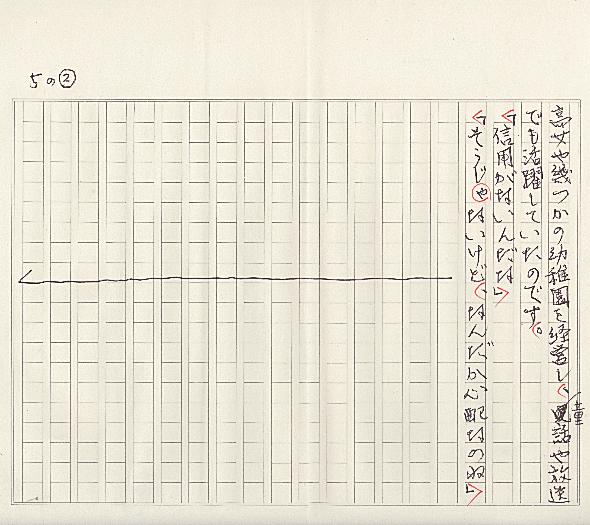 5の②
高女や幾つかの幼稚園を経営し、童話や放送
でも活躍していたのです。
「信用がないんだな」
「そうじゃないけど、なんだか心配なのね」